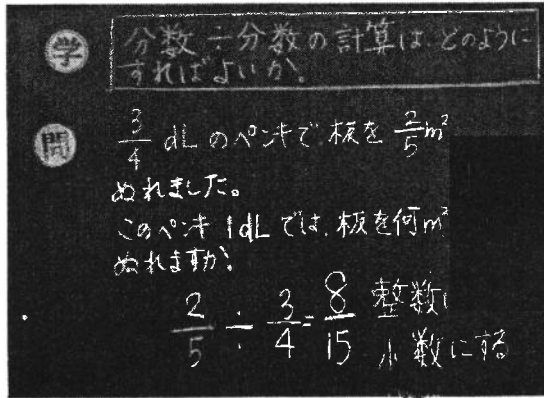 学 分数÷分数の計算は、どのように
すればよいか。
問 3/4 dLのペンキで、板を 2/5 m²
ぬれました。
このペンキ1dLでは、板を何m²
ぬれますか。
2/5 ÷ 3/4 = 8/15 整数に
小数にする